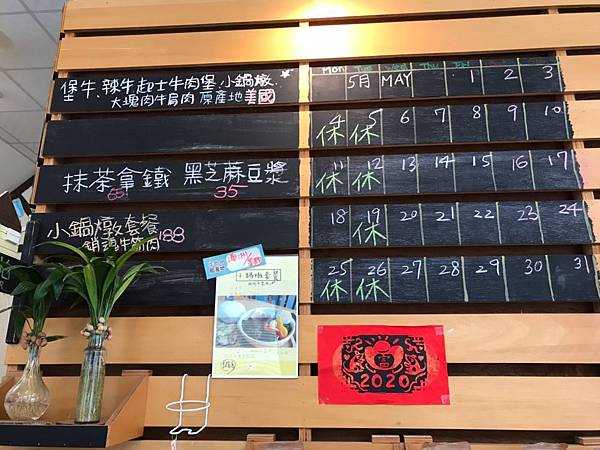 堡牛、辣牛起士牛肉堡 小鍋燉
大塊肉牛肩肉 原產地 美國
抹茶拿鐵 黑芝蔴豆漿
65 35
小鍋燉套餐
188
Mon Tue Wed Thu Fri
5月 MAY 1 2 3
4 5 6 7 8 9 10
休 休
11 12 13 14 15 16 17
休 休
18 19 20 21 22 23 24
休
25 26 27 28 29 30 31
休 休
小鍋燉套餐
2020